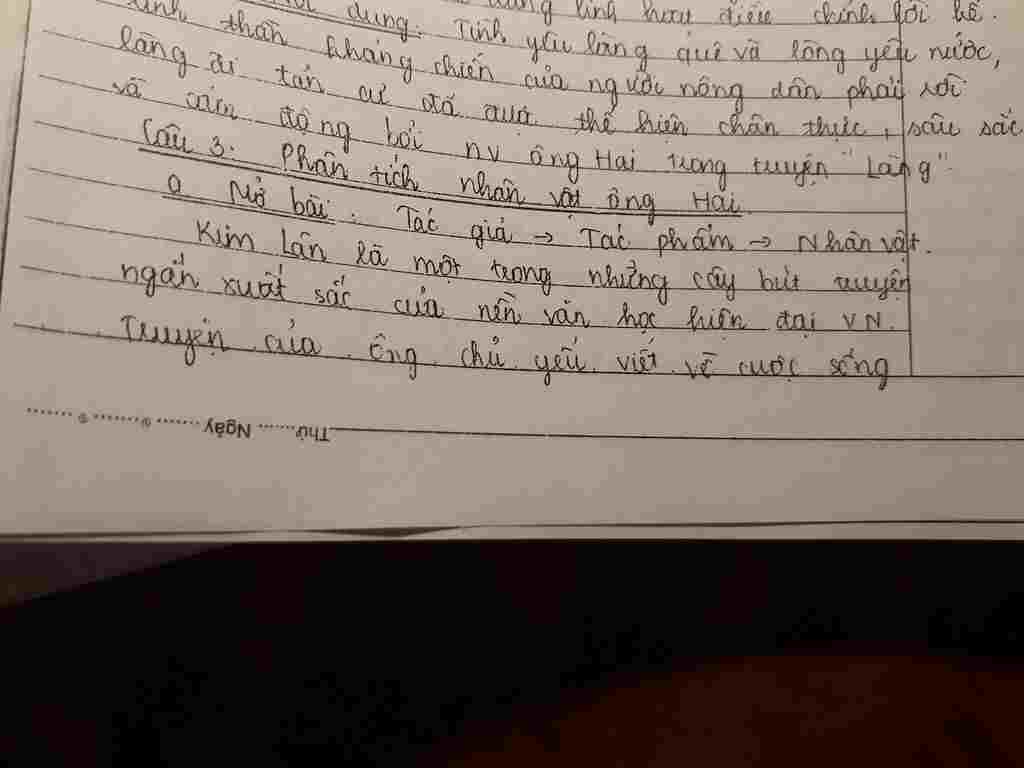 dung: Tình yêu làng quê và lòng yêu nước,
tinh thần kháng chiến của người nông dân phải rời
làng đi tản cư đã được thể hiện chân thực, sâu sắc
và cảm động bởi nv ông Hai trong truyện "Làng"
Câu 3: Phân tích nhân vật ông Hai
a Mở bài: Tác giả → Tác phẩm → Nhân vật.
Kim Lân là một trong những cây bút truyện
ngắn xuất sắc của nền văn học hiện đại VN.
Truyện của ông chủ yếu viết về cuộc sống
Thứ Ngày